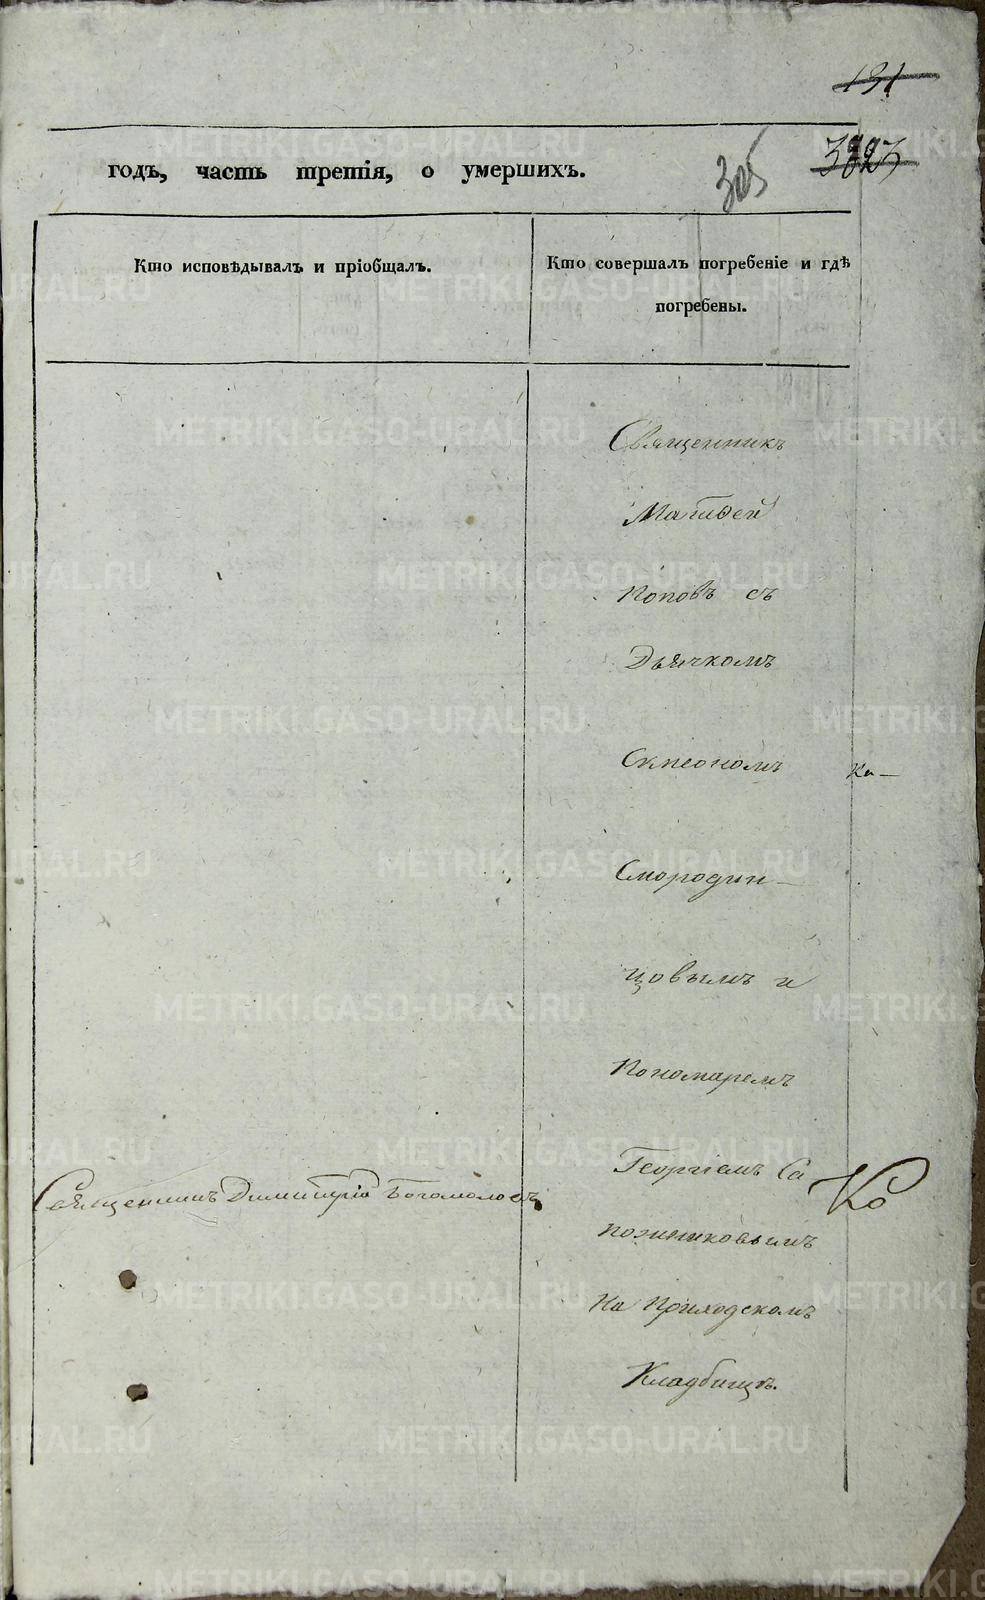 131
305
годъ, часть третія, о умершихъ.
Кто исповѣдывалъ и пріобщалъ.
Кто совершалъ погребеніе и гдѣ
погребены.
Священникъ
Матѳей
Поповъ съ
Дьячкомъ
Симеономъ
Ка-
Смородин-
цовымъ и
Пономаремъ
Георгіемъ Са
Священникъ Димитрій Богомоловъ
Ко
пожниковымъ
На Приходскомъ
Кладбищѣ.
METRIKI.GASO-URAL.RU